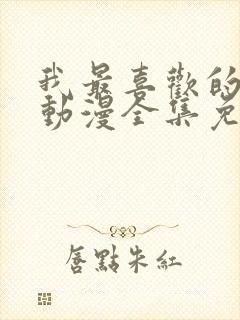 我最喜歡的
動漫全集免
唇點朱紅